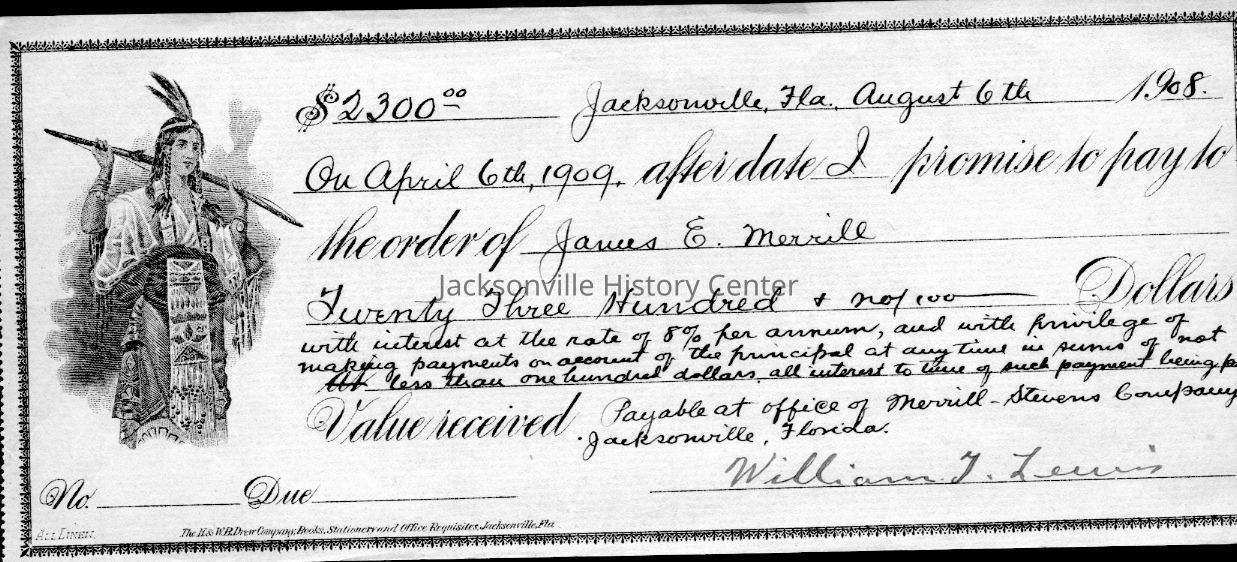 $2300.00 Jacksonville, Fla. August 6th 1908.
On April 6th, 1909. after date I promise to pay to
the order of James E. Merrill
Jacksonville History Center
Twenty Three Hundred & no/100 Dollars
with interest at the rate of 8% per annum, and with privilege of
making payments on account of the principal at any time in sums of not
less than one hundred dollars, all interest to time of such payment being
Value received Payable at office of Merrill-Stevens Company
Jacksonville, Florida.
William T. Lewis
No. Due
All Linen.
The H.& W.B. Drew Company, Books, Stationery and Office Requisites, Jacksonville, Fla